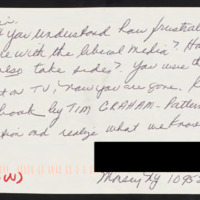 you understand how frustrat
with the liberal media? Ha
also take sides? You were th
on TV; now you are gone. R
book by TIM GRAHAM. Pattern
and realize what we know
Monsey NY 10952